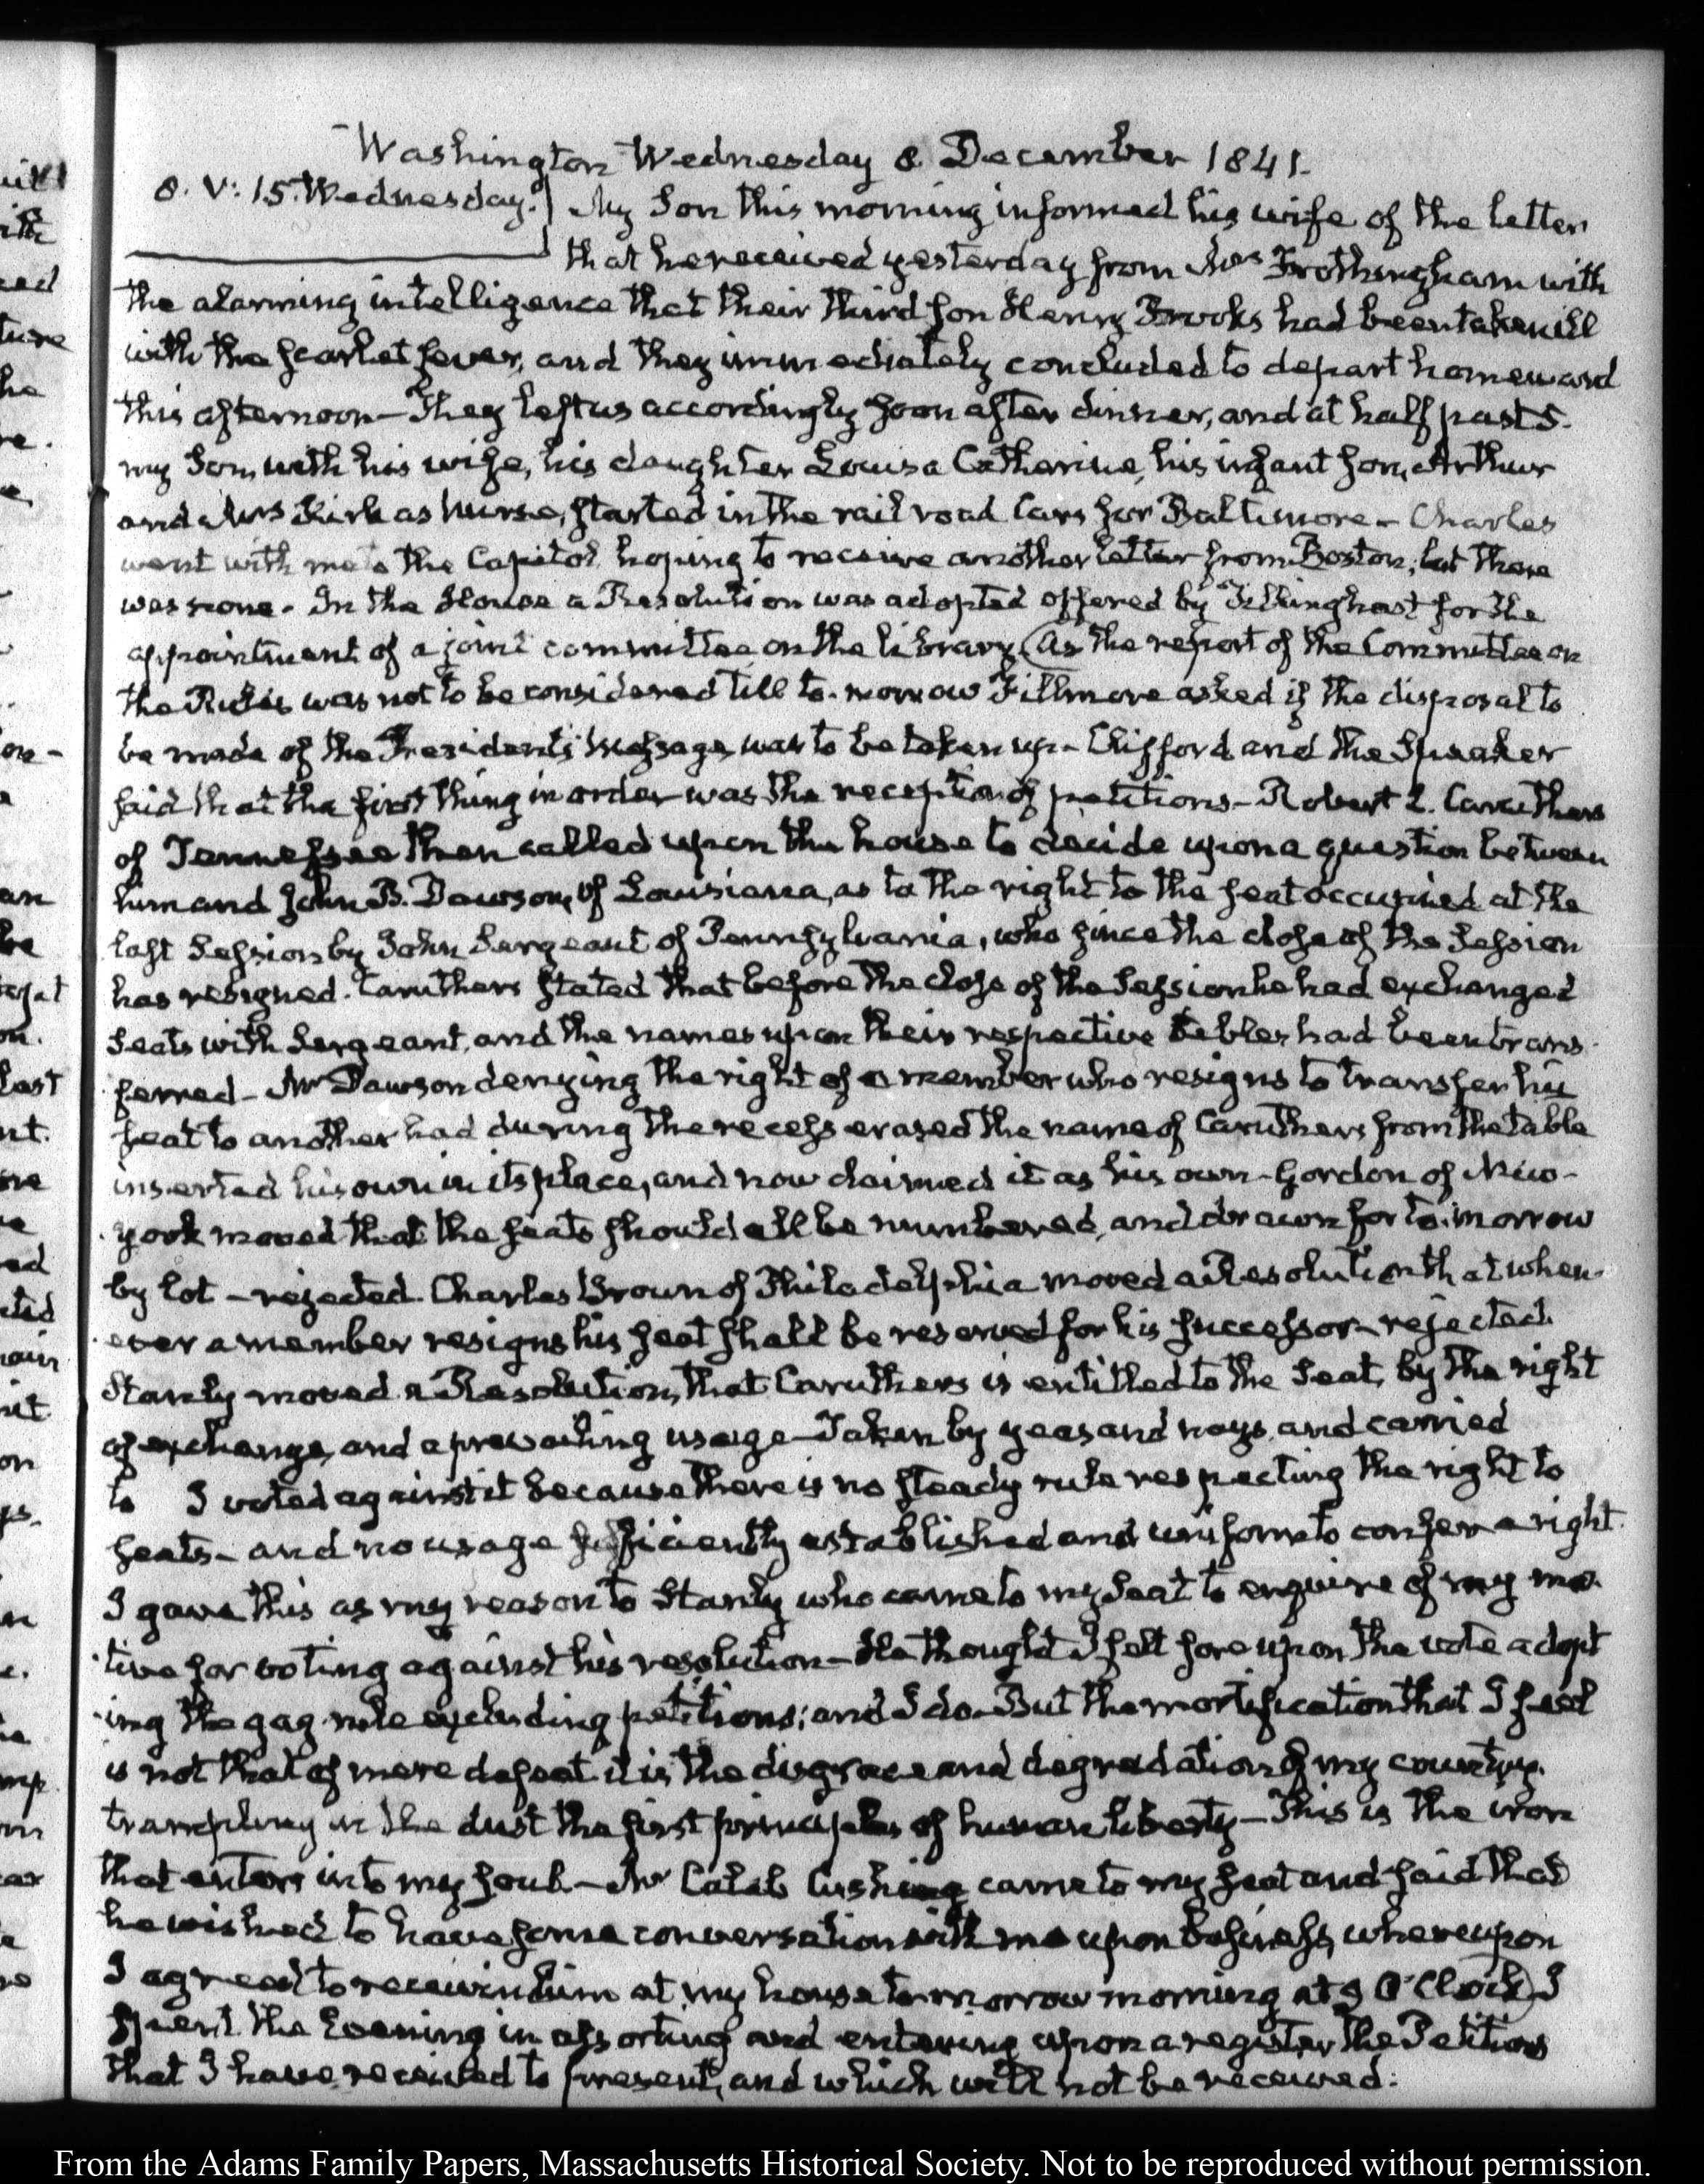 Washington Wednesday 8 December 1841.
8. V: 15. Wednesday.} My Son this morning informed his wife of the letter
that he received yesterday from Mrs Frothingham with
the alarming intelligence that their third son Henry Brooks had been taken ill
with the scarlet fever, and they immediately concluded to depart homeward
this afternoon— They left us accordingly soon after dinner, and at half past 5.
my Son, with his wife, his daughter Louisa Catherine, his infant son, Arthur
and Mrs Kirk as Nurse, started in the rail road Cars for Baltimore— Charles
went with me to the Capitol hoping to receive another letter from Boston; but there
was none— In the House a Resolution was adopted offered by Tillinghast for the
appointment of a joint committee on the library (As the report of the Committee on
the Rules was not to be considered till to-morrow Fillmore asked if the disposal to
be made of the President's Message was to be taken up— Clifford and the Speaker
said that the first thing in order was the reception of petitions— Robert L. Caruthers
of Tennessee then called upon the house to decide upon a question between
him and John B. Dawson, of Louisiana, as to the right to the seat occupied at the
last Session by John Sergeant of Pennsylvania, who since the close of the Session
has resigned. Caruthers stated that before the close of the Session he had exchanged
seats with Sergeant, and the names upon their respective tables had been trans-
ferred— Mr Dawson denying the right of a member who resigns to transfer his
seat to another had during the recess erased the name of Caruthers from the table
inserted his own in its place, and now claimed it as his own— Gordon of New-
york moved that the seats should all be numbered, and drawn for to-morrow
by lot— rejected. Charles Brown of Philadelphia moved a Resolution that when-
ever a member resigns his seat shall be reserved for his successor— rejected.
Stanly moved a Resolution, that Caruthers is entitled to the Seat, by the right
of exchange, and a prevailing usage— Taken by yeas and nays, and carried
to I voted against it because there is no steady rule respecting the right to
seats— and no usage sufficiently established and uniform to confer a right.
I gave this as my reason to Stanly who came to my Seat to enquire of my mo-
tive for voting against his resolution— He thought I felt sore upon the vote adopt
ing the gag-rule excluding petitions; and I do— But the mortification that I feel
is not that of mere defeat it is the disgrace and degradation of my country.
trampling in the dust the first principles of human liberty— This is the iron
that enters into my soul.— Mr Caleb Cushing came to my seat and said that
he wished to have some conversation with me upon business, whereupon
I agreed to receive him at my house to-morrow morning at 9 O'Clock) I
spent the Evening in assorting and entering upon a register the Petitions
that I have received to present, and which will not be received.
From the Adams Family Papers, Massachusetts Historical Society. Not to be reproduced without permission.